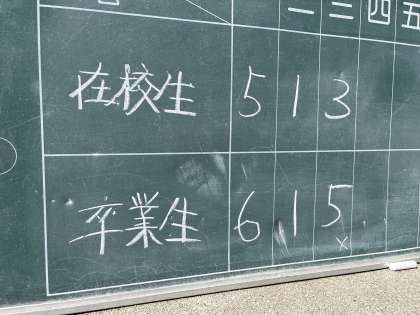 一 二 三 四 五
在校生 5 1 3
卒業生 6 1 5 x